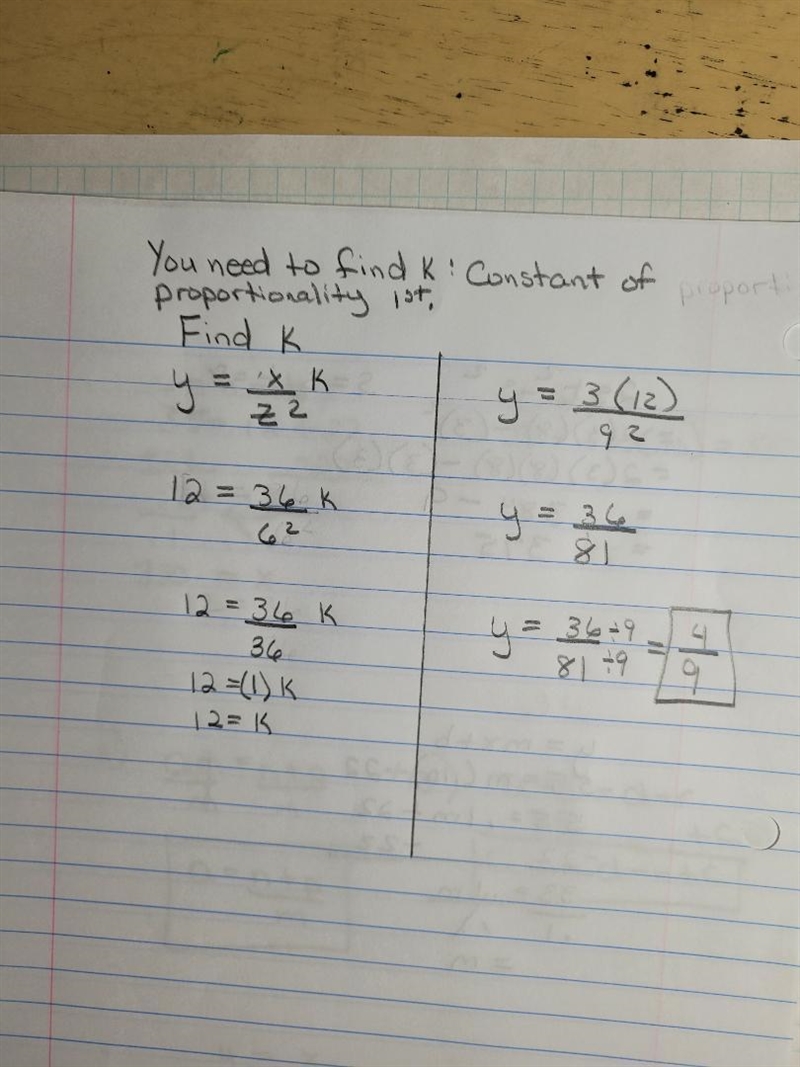 You need to find K : Constant of
proportionality 1st.
Find K
y = x/z² K
12 = 36/6² K
12 = 36/36 K
12 = (1) K
12 = K
y = 3(12)/9²
y = 36/81
y = 36÷9/81÷9 = 4/9